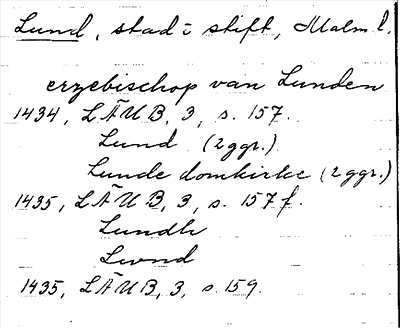 Lund, stad i stift, Malm. l.
erzebischop van Lunden
1434, LÄUB, 3, s. 157.
Lund (2 ggr.)
Lunde domkirke (2 ggr.)
1435, LÄUB, 3, s. 157 f.
Lundh
Lwnd
1435, LÄUB, 3, s. 159.